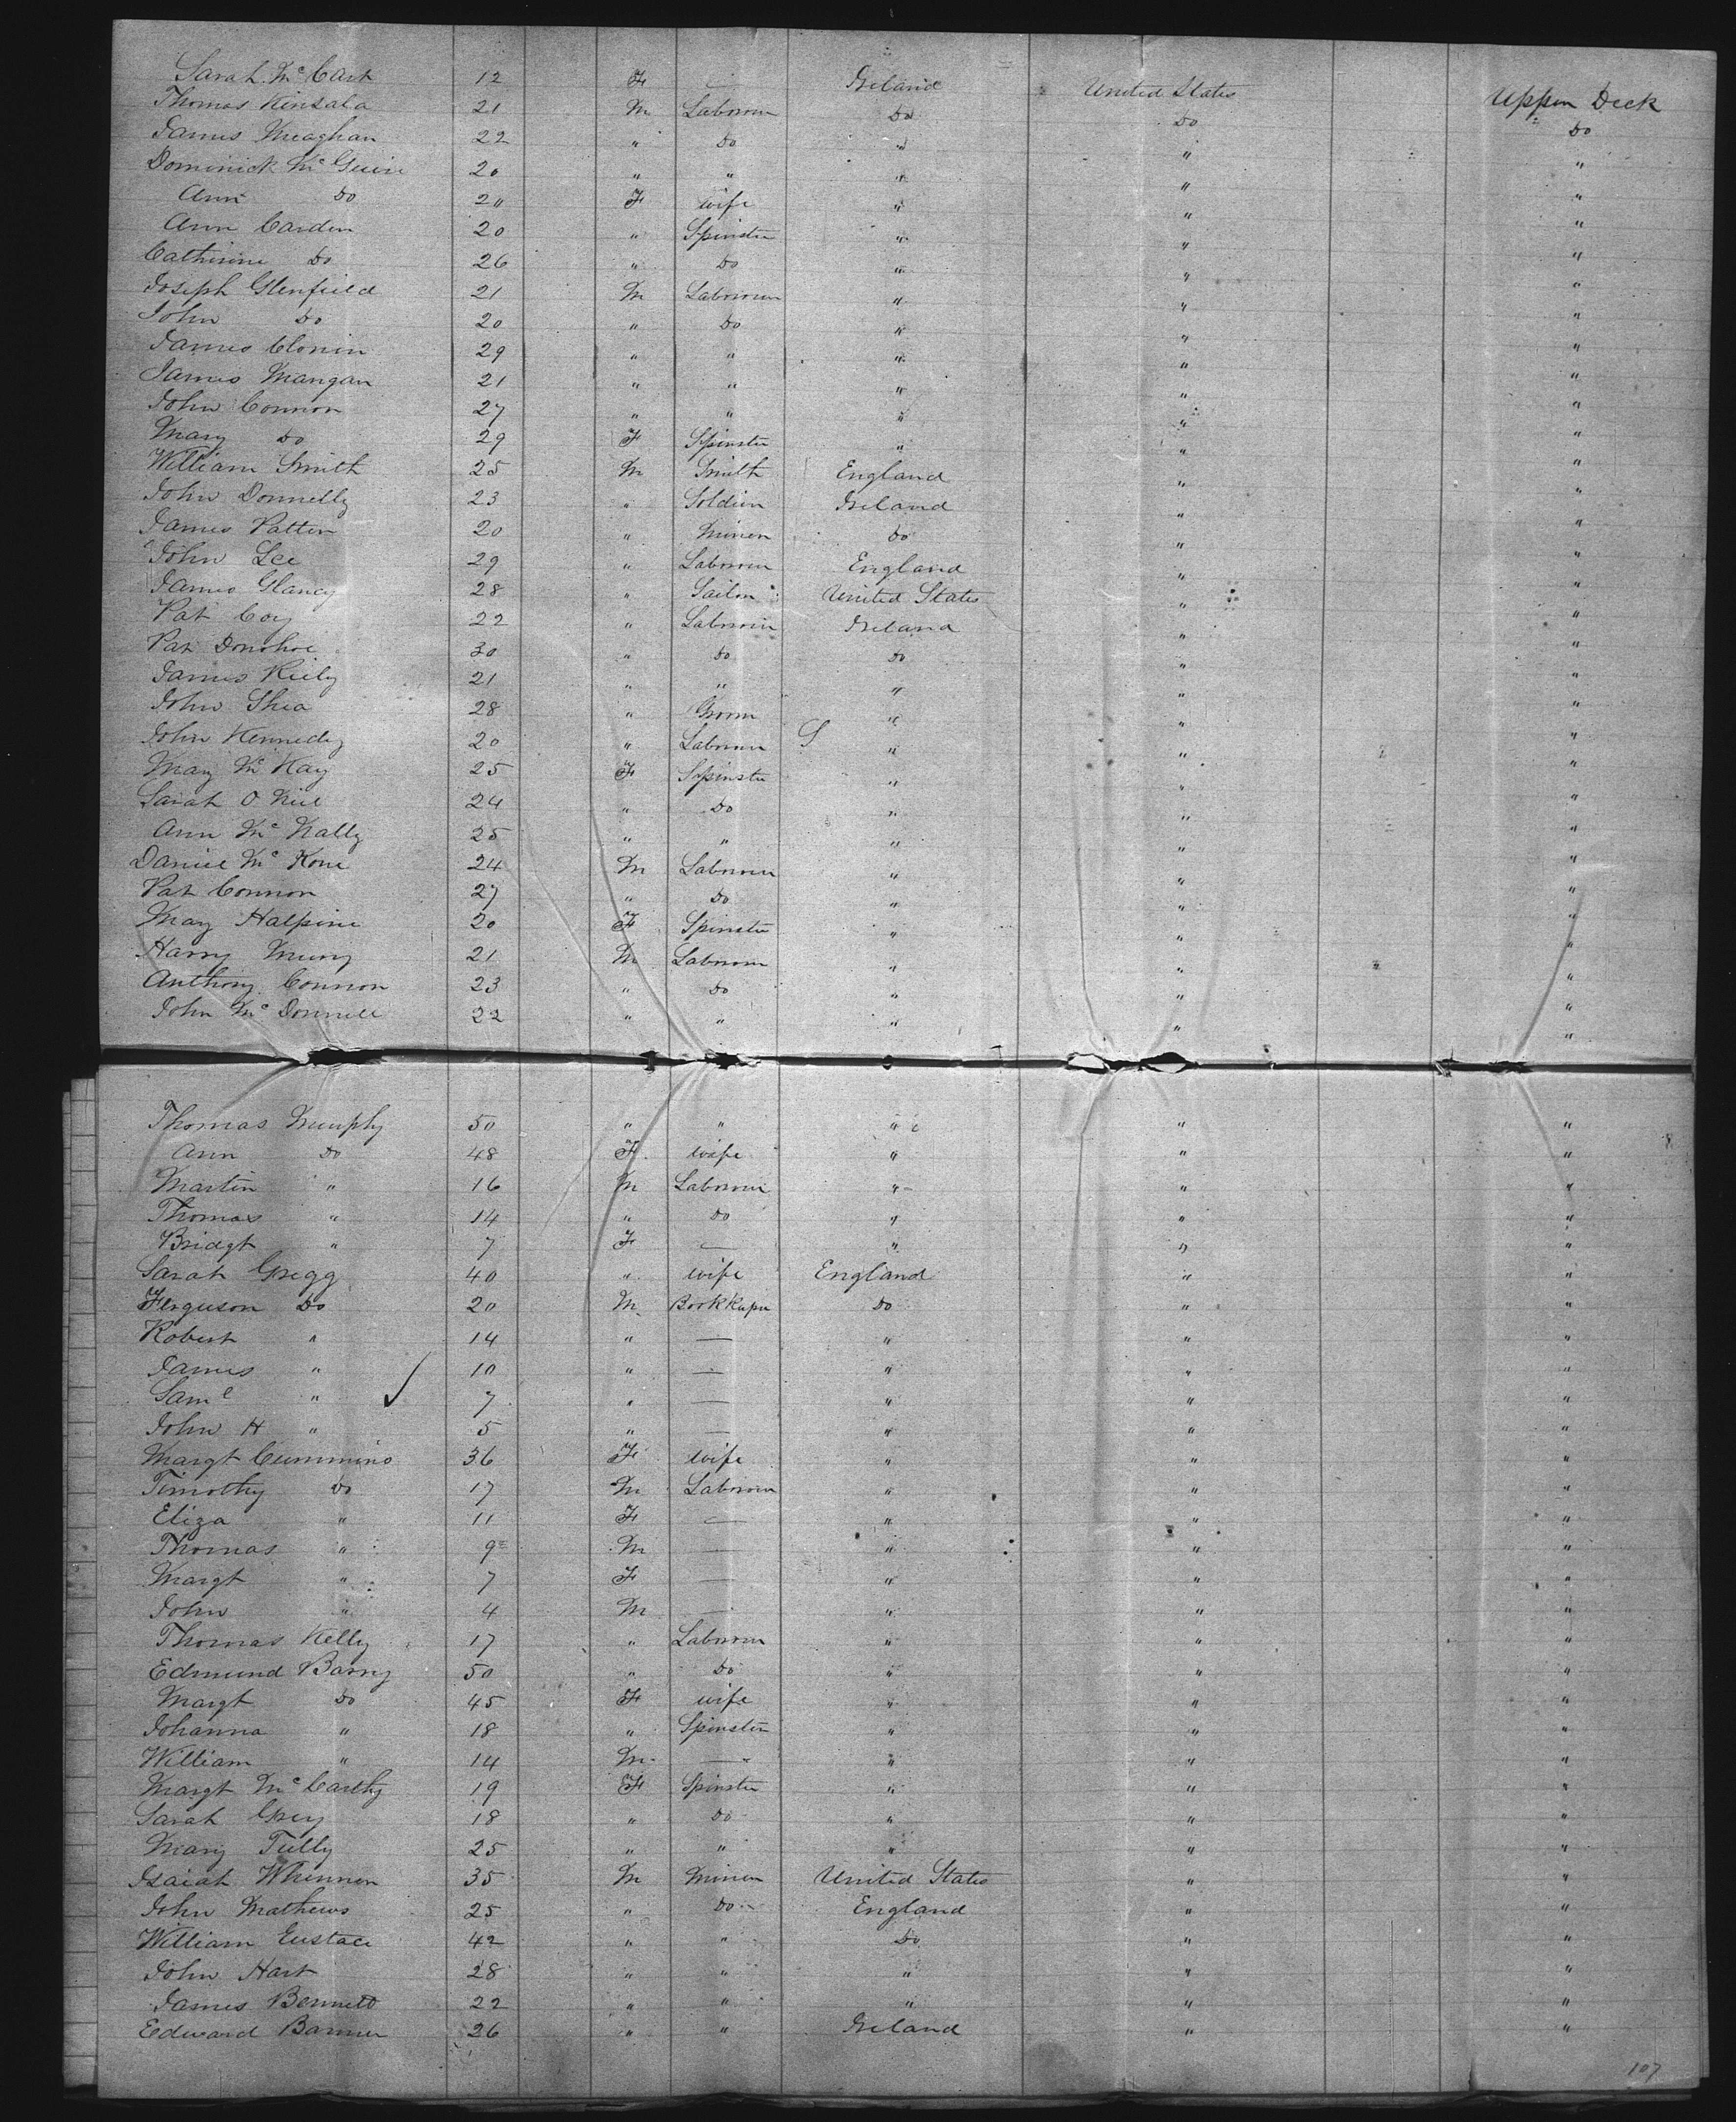 Sarah Mc Cart 12 F — Ireland United States Upper Deck
Thomas Kinsala 21 M Labourer Do Do Do
James Meaghan 22 " Do " " "
Dominick Mc Guire 20 " " " " "
Ann Do 20 F wife " " "
Ann Carden 20 " Spinster " " "
Catherine Do 26 " Do " " "
Joseph Glenfield 21 M Labourer " " "
John Do 20 " Do " " "
James Clonin 29 " " " " "
James Mangan 21 " " " " "
John Connor 27 " " " " "
Mary Do 29 F Spinster " " "
William Smith 25 M Smith England " "
John Donnelly 23 " Soldier Ireland " "
James Patten 20 " Miner Do " "
John Lee 29 " Labourer England " "
James Glancy 28 " Sailor United States " "
Pat Coy 22 " Labourer Ireland " "
Pat Donohoe 30 " Do Do " "
James Kiely 21 " " " " "
John Shea 28 " Groom " " "
John Kennedy 20 " Labourer " " "
Mary Mc Kay 25 F Spinster " " "
Sarah O Neil 24 " Do " " "
Ann Mc Nally 25 " " " " "
Daniel Mc Kone 24 M Labourer " " "
Pat Connor 27 " Do " " "
Mary Halpine 20 F Spinster " " "
Harry 21 M Labourer " " "
Anthony Connor 23 " Do " " "
John Mc Donnell 22 " " " " "
Thomas Murphy 50 " " " " "
Ann Do 48 F wife " " "
Martin " 16 M Labourer " " "
Thomas " 14 " Do " " "
Bridgt " 7 F — " " "
Sarah Gregg 40 " wife England " "
Ferguson Do 20 M Bookkeeper Do " "
Robert " 14 " — " " "
James " 10 " — " " "
Saml " ✓ 7 " — " " "
John H " 5 " — " " "
Margt Cummins 36 F wife " " "
Timothy Do 17 M Labourer " " "
Eliza " 11 F — " " "
Thomas " 9 M — " " "
Margt " 7 F — " " "
John " 4 M — " " "
Thomas Kelly 17 " Labourer " " "
Edmund Barry 50 " Do " " "
Margt Do 45 F wife " " "
Johanna " 18 " Spinster " " "
William " 14 M — " " "
Margt Mc Carthy 19 F Spinster " " "
Sarah Grey 18 " Do " " "
Mary Tully 25 " " " " "
Isaiah Whennen 35 M Miner United States " "
John Mathews 25 " Do England " "
William Eustace 42 " " Do " "
John Hart 28 " " " " "
James Bennett 22 " " " " "
Edward Banner 26 " " Ireland " "
107